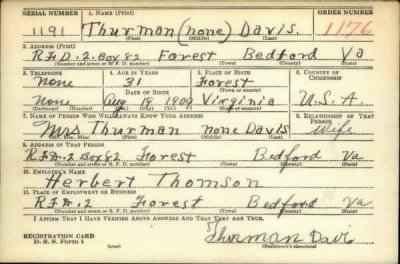 SERIAL NUMBER 1. NAME (Print) ORDER NUMBER
1191 Thurman (none) Davis. 1176
(First) (Middle) (Last)
2. ADDRESS (Print)
R.F.D. 2. Box 82 Forest Bedford Va
(Number and street or R. F. D. number) (Town) (County) (State)
3. TELEPHONE 4. AGE IN YEARS 5. PLACE OF BIRTH 6. COUNTRY OF CITIZENSHIP
none 31 Forest
DATE OF BIRTH (Town or county)
none Aug 19 1909 Virginia U.S.A.
(Exchange) (Number) (Mo.) (Day) (Yr.) (State or country)
7. NAME OF PERSON WHO WILL ALWAYS KNOW YOUR ADDRESS 8. RELATIONSHIP OF THAT PERSON
Mrs Thurman none Davis wife
(Mr., Mrs., Miss) (First) (Middle) (Last)
9. ADDRESS OF THAT PERSON
R.F.D. 2 Box 82 Forest Bedford Va
(Number and street or R. F. D. number) (Town) (County) (State)
10. EMPLOYER'S NAME
Herbert Thomson
11. PLACE OF EMPLOYMENT OR BUSINESS
R.F.D. 2 Forest Bedford Va
(Number and street or R. F. D. number) (Town) (County) (State)
I AFFIRM THAT I HAVE VERIFIED ABOVE ANSWERS AND THAT THEY ARE TRUE.
REGISTRATION CARD
D. S. S. Form 1 (over) Thurman Davis
(Registrant's signature)